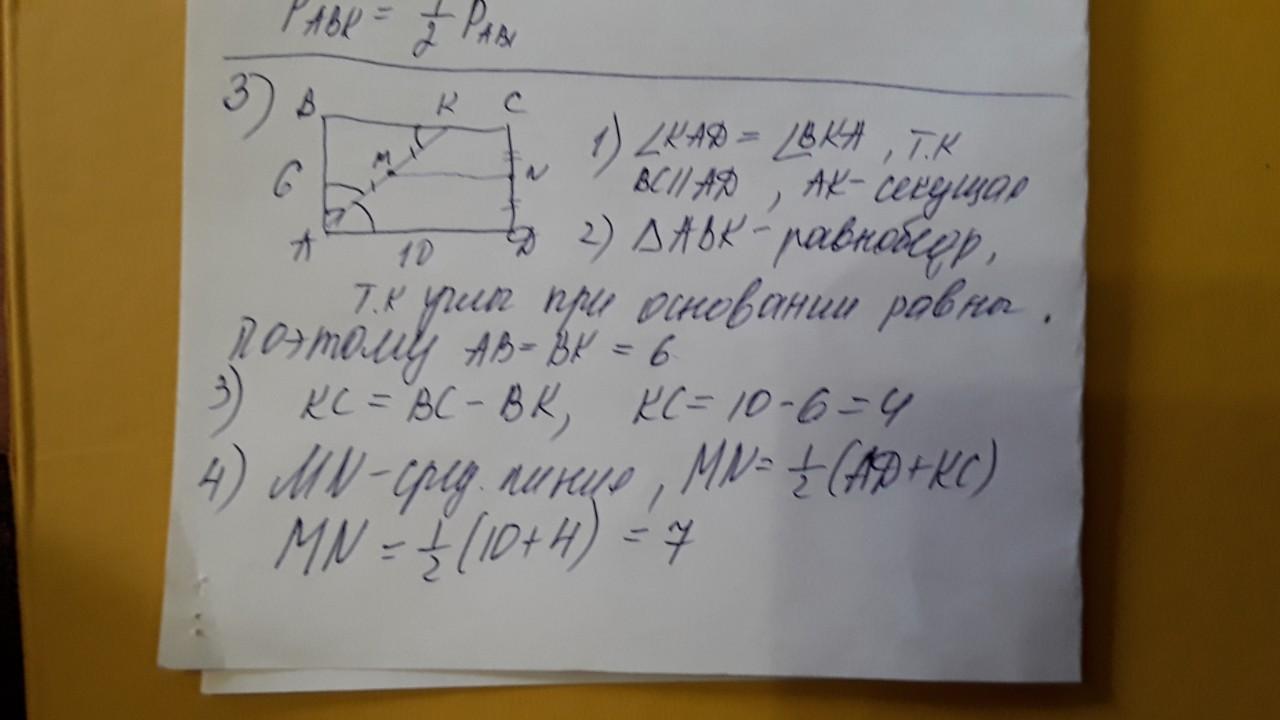 P_ABK = 1/2 P_AB
3) B K C
6 M N
A 10 D
1) ∠KAD = ∠BKA, Т.К
BC||AD, AK - секущая
2) ΔABK - равнобедр,
Т.К углы при основании равны.
Поэтому AB = BK = 6
3) KC = BC - BK, KC = 10 - 6 = 4
4) MN - сред. линия, MN = 1/2 (AD + KC)
MN = 1/2 (10 + 4) = 7